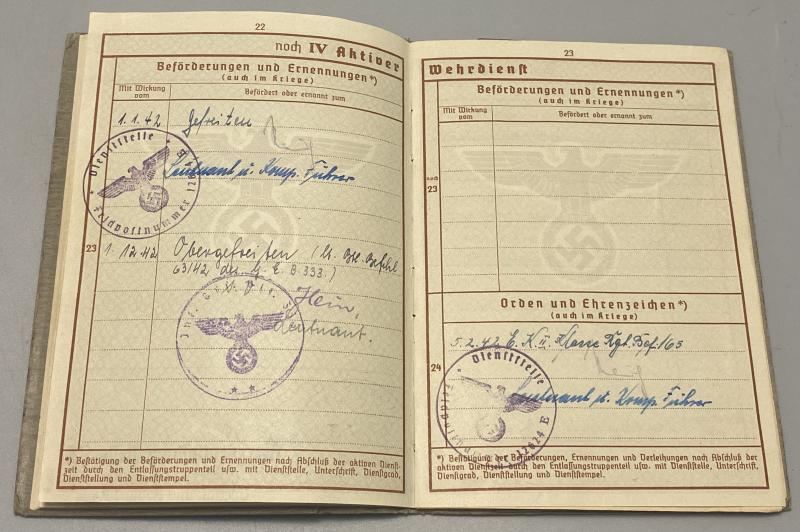 22
noch IV Aktiver
Beförderungen und Ernennungen*)
(auch im Kriege)
Mit Wirkung vom
Befördert oder ernannt zum
1.1.42 Gefreiten
Leutnant u. Komp. Führer
Dienststelle
Feldpostnummer
23
1.12.42 Obergefreiten (lt. Btl. Befehl
63/42 des G. E. B 333.)
Hein,
Leutnant.
*) Bestätigung der Beförderungen und Ernennungen nach Abschluß der aktiven Dienst-
zeit durch den Entlassungstruppenteil usw. mit Dienststelle, Unterschrift, Dienstgrad,
Dienststellung und Dienststempel.
23
Wehrdienst
Beförderungen und Ernennungen*)
(auch im Kriege)
Mit Wirkung vom
Befördert oder ernannt zum
noch
23
Orden und Ehrenzeichen*)
(auch im Kriege)
5.2.42 E.K. II. Klasse Rgt. Bef. 165
24
Leutnant u. Komp. Führer
Dienststelle
Feldpostnummer 12024 E
*) Bestätigung der Beförderungen, Ernennungen und Verleihungen nach Abschluß der
aktiven Dienstzeit durch den Entlassungstruppenteil usw. mit Dienststelle, Unterschrift,
Dienstgrad, Dienststellung und Dienststempel.